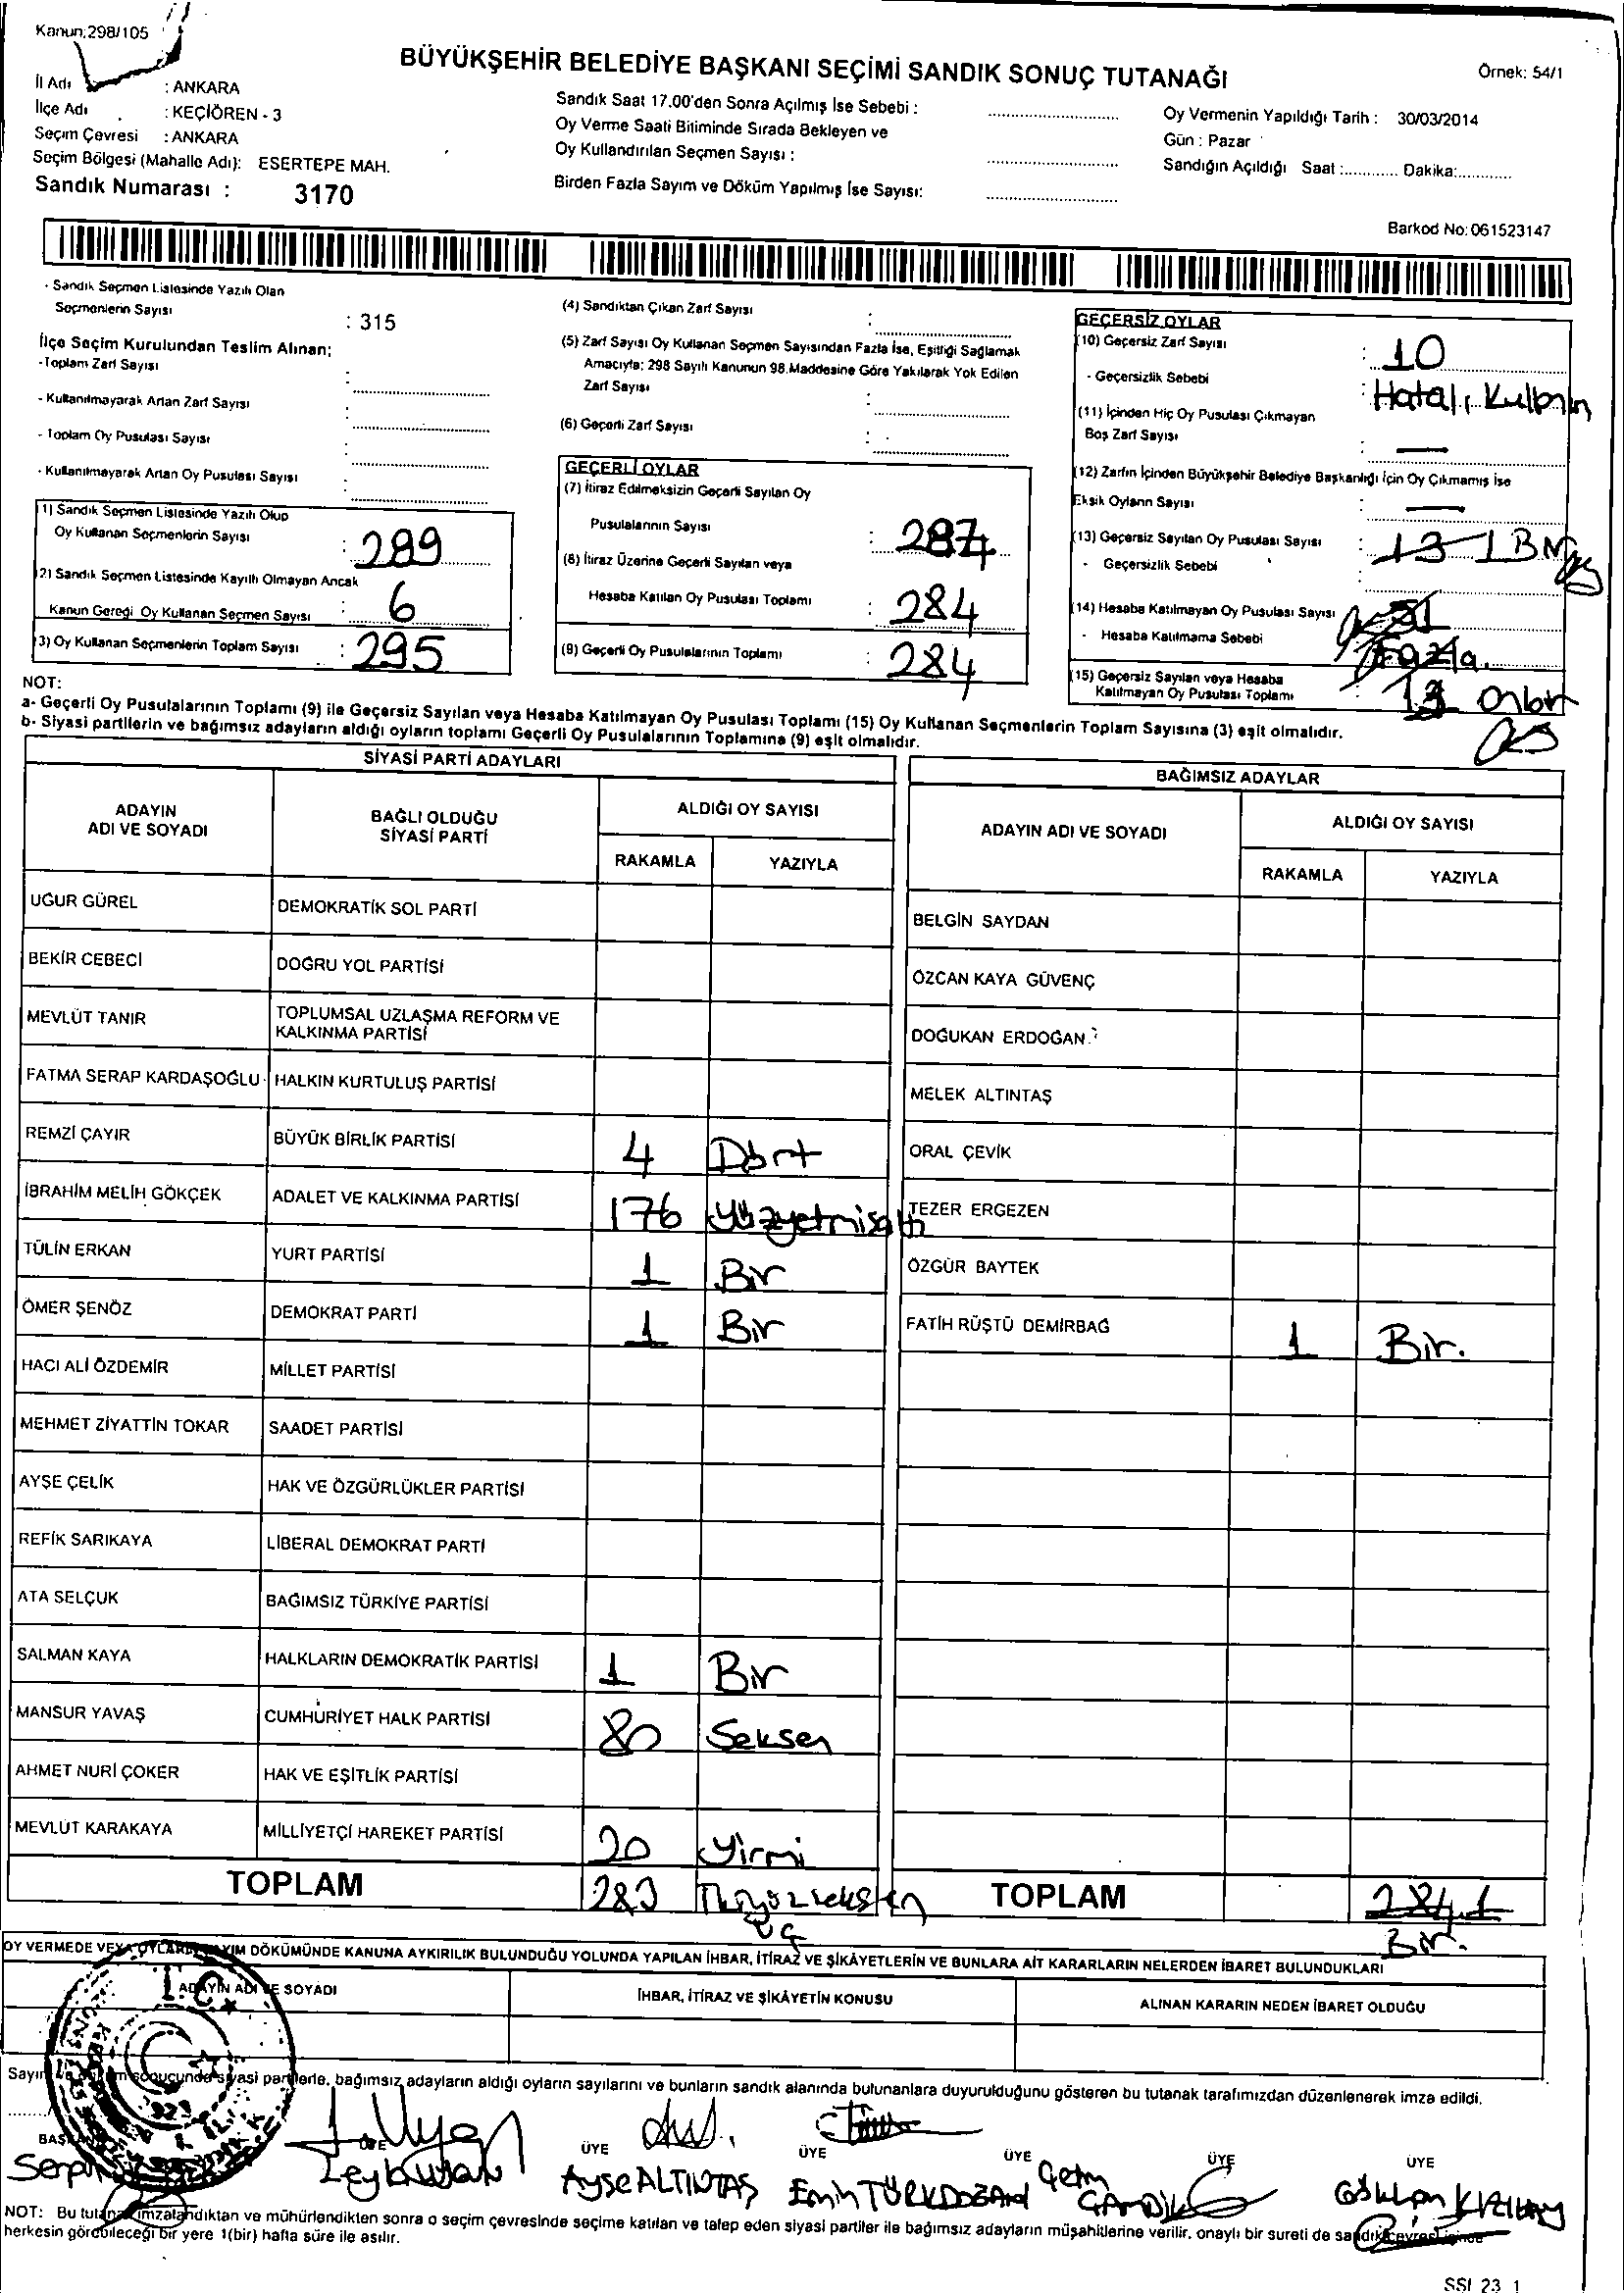 Kanun:298/105
BÜYÜKŞEHİR BELEDİYE BAŞKANI SEÇİMİ SANDIK SONUÇ TUTANAĞI
Örnek: 54/1
İl Adı : ANKARA
İlçe Adı : KEÇİÖREN - 3
Seçim Çevresi : ANKARA
Seçim Bölgesi (Mahalle Adı): ESERTEPE MAH.
Sandık Numarası : 3170
Sandık Saat 17.00'den Sonra Açılmış İse Sebebi :
Oy Verme Saati Bitiminde Sırada Bekleyen ve
Oy Kullandırılan Seçmen Sayısı :
Birden Fazla Sayım ve Döküm Yapılmış İse Sayısı:
Oy Vermenin Yapıldığı Tarih : 30/03/2014
Gün : Pazar
Sandığın Açıldığı Saat :............ Dakika:............
Barkod No: 061523147
- Sandık Seçmen Listesinde Yazılı Olan
Seçmenlerin Sayısı : 315
İlçe Seçim Kurulundan Teslim Alınan:
-Toplam Zarf Sayısı :
- Kullanılmayarak Artan Zarf Sayısı :
- Toplam Oy Pusulası Sayısı :
- Kullanılmayarak Artan Oy Pusulası Sayısı :
(1) Sandık Seçmen Listesinde Yazılı Olup
Oy Kullanan Seçmenlerin Sayısı : 289
(2) Sandık Seçmen Listesinde Kayıtlı Olmayan Ancak
Kanun Gereği Oy Kullanan Seçmen Sayısı : 6
(3) Oy Kullanan Seçmenlerin Toplam Sayısı : 295
(4) Sandıktan Çıkan Zarf Sayısı :
(5) Zarf Sayısı Oy Kullanan Seçmen Sayısından Fazla İse, Eşitliği Sağlamak
Amacıyla; 298 Sayılı Kanunun 98.Maddesine Göre Yakılarak Yok Edilen
Zarf Sayısı :
(6) Geçerli Zarf Sayısı :
GEÇERLİ OYLAR
(7) İtiraz Edilmeksizin Geçerli Sayılan Oy
Pusulalarının Sayısı : 284
(8) İtiraz Üzerine Geçerli Sayılan veya
Hesaba Katılan Oy Pusulası Toplamı : 284
(9) Geçerli Oy Pusulalarının Toplamı : 284
GEÇERSİZ OYLAR
(10) Geçersiz Zarf Sayısı : 10
- Geçersizlik Sebebi : Hatalı
(11) İçinden Hiç Oy Pusulası Çıkmayan
Boş Zarf Sayısı : —
(12) Zarfın İçinden Büyükşehir Belediye Başkanlığı İçin Oy Çıkmamış İse
Eksik Oyların Sayısı : —
(13) Geçersiz Sayılan Oy Pusulası Sayısı : 13
- Geçersizlik Sebebi :
(14) Hesaba Katılmayan Oy Pusulası Sayısı
- Hesaba Katılmama Sebebi Fazla.
(15) Geçersiz Sayılan veya Hesaba
Katılmayan Oy Pusulası Toplamı :
NOT:
a- Geçerli Oy Pusulalarının Toplamı (9) ile Geçersiz Sayılan veya Hesaba Katılmayan Oy Pusulası Toplamı (15) Oy Kullanan Seçmenlerin Toplam Sayısına (3) eşit olmalıdır.
b- Siyasi partilerin ve bağımsız adayların aldığı oyların toplamı Geçerli Oy Pusulalarının Toplamına (9) eşit olmalıdır.
SİYASİ PARTİ ADAYLARI
ADAYIN ADI VE SOYADI
BAĞLI OLDUĞU SİYASİ PARTİ
ALDIĞI OY SAYISI
RAKAMLA YAZIYLA
UĞUR GÜREL DEMOKRATİK SOL PARTİ
BEKİR CEBECİ DOĞRU YOL PARTİSİ
MEVLÜT TANIR TOPLUMSAL UZLAŞMA REFORM VE
KALKINMA PARTİSİ
FATMA SERAP KARDAŞOĞLU HALKIN KURTULUŞ PARTİSİ
REMZİ ÇAYIR BÜYÜK BİRLİK PARTİSİ 4 Dört
İBRAHİM MELİH GÖKÇEK ADALET VE KALKINMA PARTİSİ 176 Yüzyetmisaltı
TÜLİN ERKAN YURT PARTİSİ 1 Bir
ÖMER ŞENÖZ DEMOKRAT PARTİ 1 Bir
HACI ALİ ÖZDEMİR MİLLET PARTİSİ
MEHMET ZİYATTİN TOKAR SAADET PARTİSİ
AYŞE ÇELİK HAK VE ÖZGÜRLÜKLER PARTİSİ
REFİK SARIKAYA LİBERAL DEMOKRAT PARTİ
ATA SELÇUK BAĞIMSIZ TÜRKİYE PARTİSİ
SALMAN KAYA HALKLARIN DEMOKRATİK PARTİSİ 1 Bir
MANSUR YAVAŞ CUMHURİYET HALK PARTİSİ 80 Seksen
AHMET NURİ ÇOKER HAK VE EŞİTLİK PARTİSİ
MEVLÜT KARAKAYA MİLLİYETÇİ HAREKET PARTİSİ 20 Yirmi
TOPLAM 283 İkiyüzseksen
üç
BAĞIMSIZ ADAYLAR
ADAYIN ADI VE SOYADI
ALDIĞI OY SAYISI
RAKAMLA YAZIYLA
BELGİN SAYDAN
ÖZCAN KAYA GÜVENÇ
DOĞUKAN ERDOĞAN
MELEK ALTINTAŞ
ORAL ÇEVİK
TEZER ERGEZEN
ÖZGÜR BAYTEK
FATİH RÜŞTÜ DEMİRBAĞ 1 Bir.
TOPLAM 284 1
Bir.
OY VERMEDE VEYA OYLARIN SAYIM DÖKÜMÜNDE KANUNA AYKIRILIK BULUNDUĞU YOLUNDA YAPILAN İHBAR, İTİRAZ VE ŞİKÂYETLERİN VE BUNLARA AİT KARARLARIN NELERDEN İBARET BULUNDUKLARI
ADAYIN ADI VE SOYADI
İHBAR, İTİRAZ VE ŞİKÂYETİN KONUSU
ALINAN KARARIN NEDEN İBARET OLDUĞU
T.C.
Sayım ve döküm sonucunda siyasi partilerle, bağımsız adayların aldığı oyların sayılarını ve bunların sandık alanında bulunanlara duyurulduğunu gösteren bu tutanak tarafımızdan düzenlenerek imza edildi.
BAŞKAN ÜYE ÜYE ÜYE ÜYE ÜYE ÜYE
Ayşe ALTINTAŞ Emin TÜRKDOĞAN Çetin Gökhan
NOT: Bu tutanak imzalandıktan ve mühürlendikten sonra o seçim çevresinde seçime katılan ve talep eden siyasi partiler ile bağımsız adayların müşahitlerine verilir, onaylı bir sureti de sandık çevresi içinde
herkesin görebileceği bir yere 1(bir) hafta süre ile asılır.
SSI 23 1